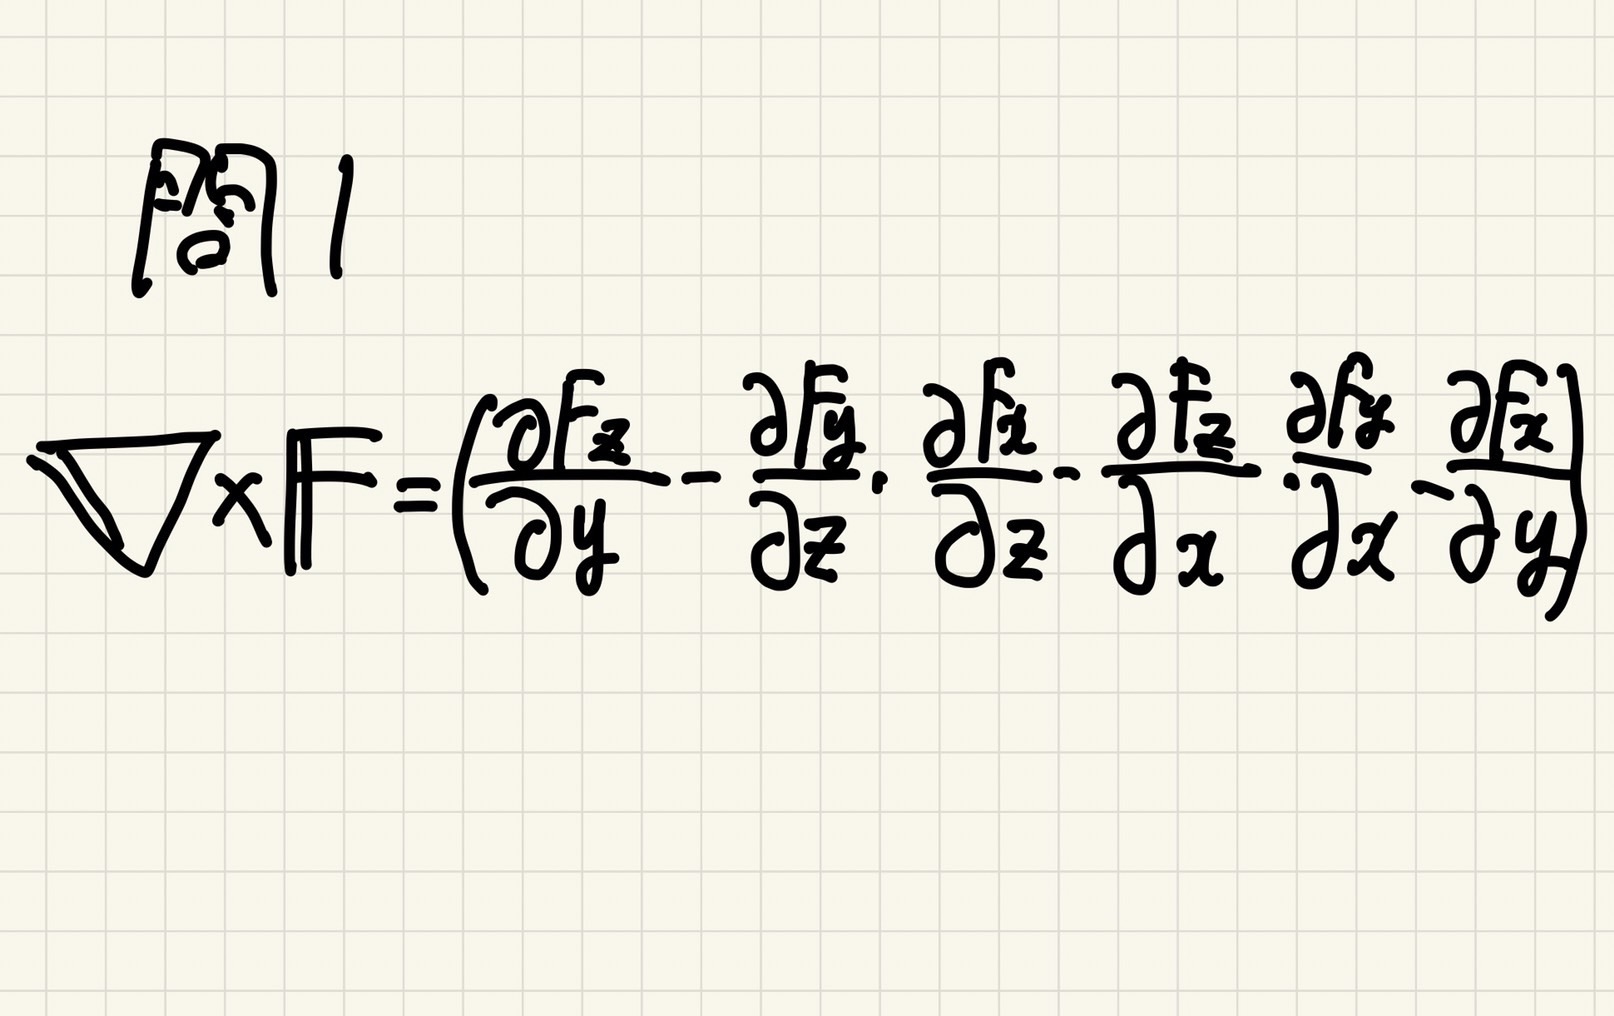 問1
∇×𝔽=(∂Fz/∂y-∂Fy/∂z,∂Fx/∂z-∂Fz/∂x,∂Fy/∂x-∂Fx/∂y)